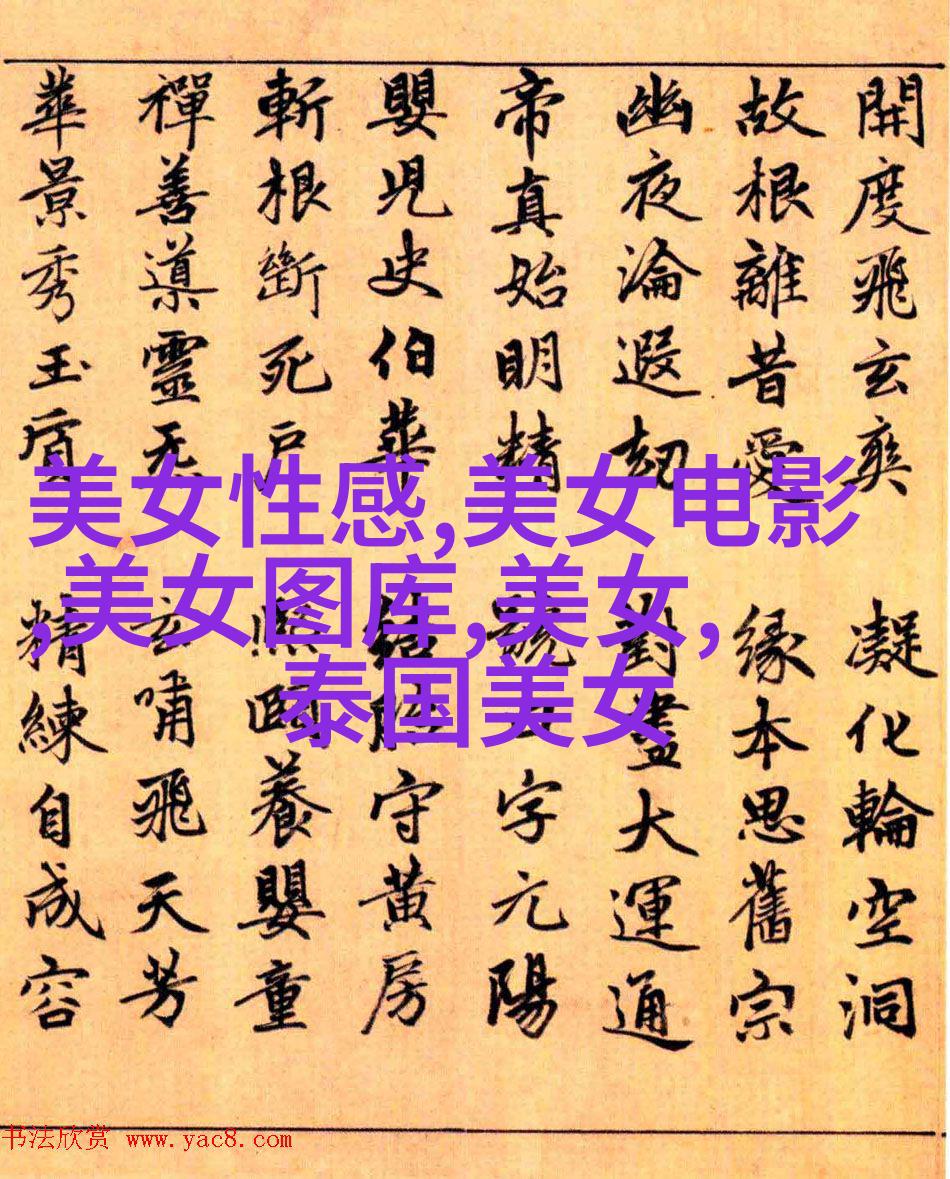 開度飛玄爽 凝化輪空洞
故根離昔愛 緣本思舊宗
幽夜淪遐劫 對盡大運通
帝真始明精 號 字元陽
嬰児史伯華 結胎守黃房
斬根斷死戶 熙 養嬰童
禪善導靈无 玄嘯飛天芳
華景秀玉質 精練自成容
美女性感,美女电影
,美女图库,美女,
泰国美女
书法欣赏 www.yac8.com